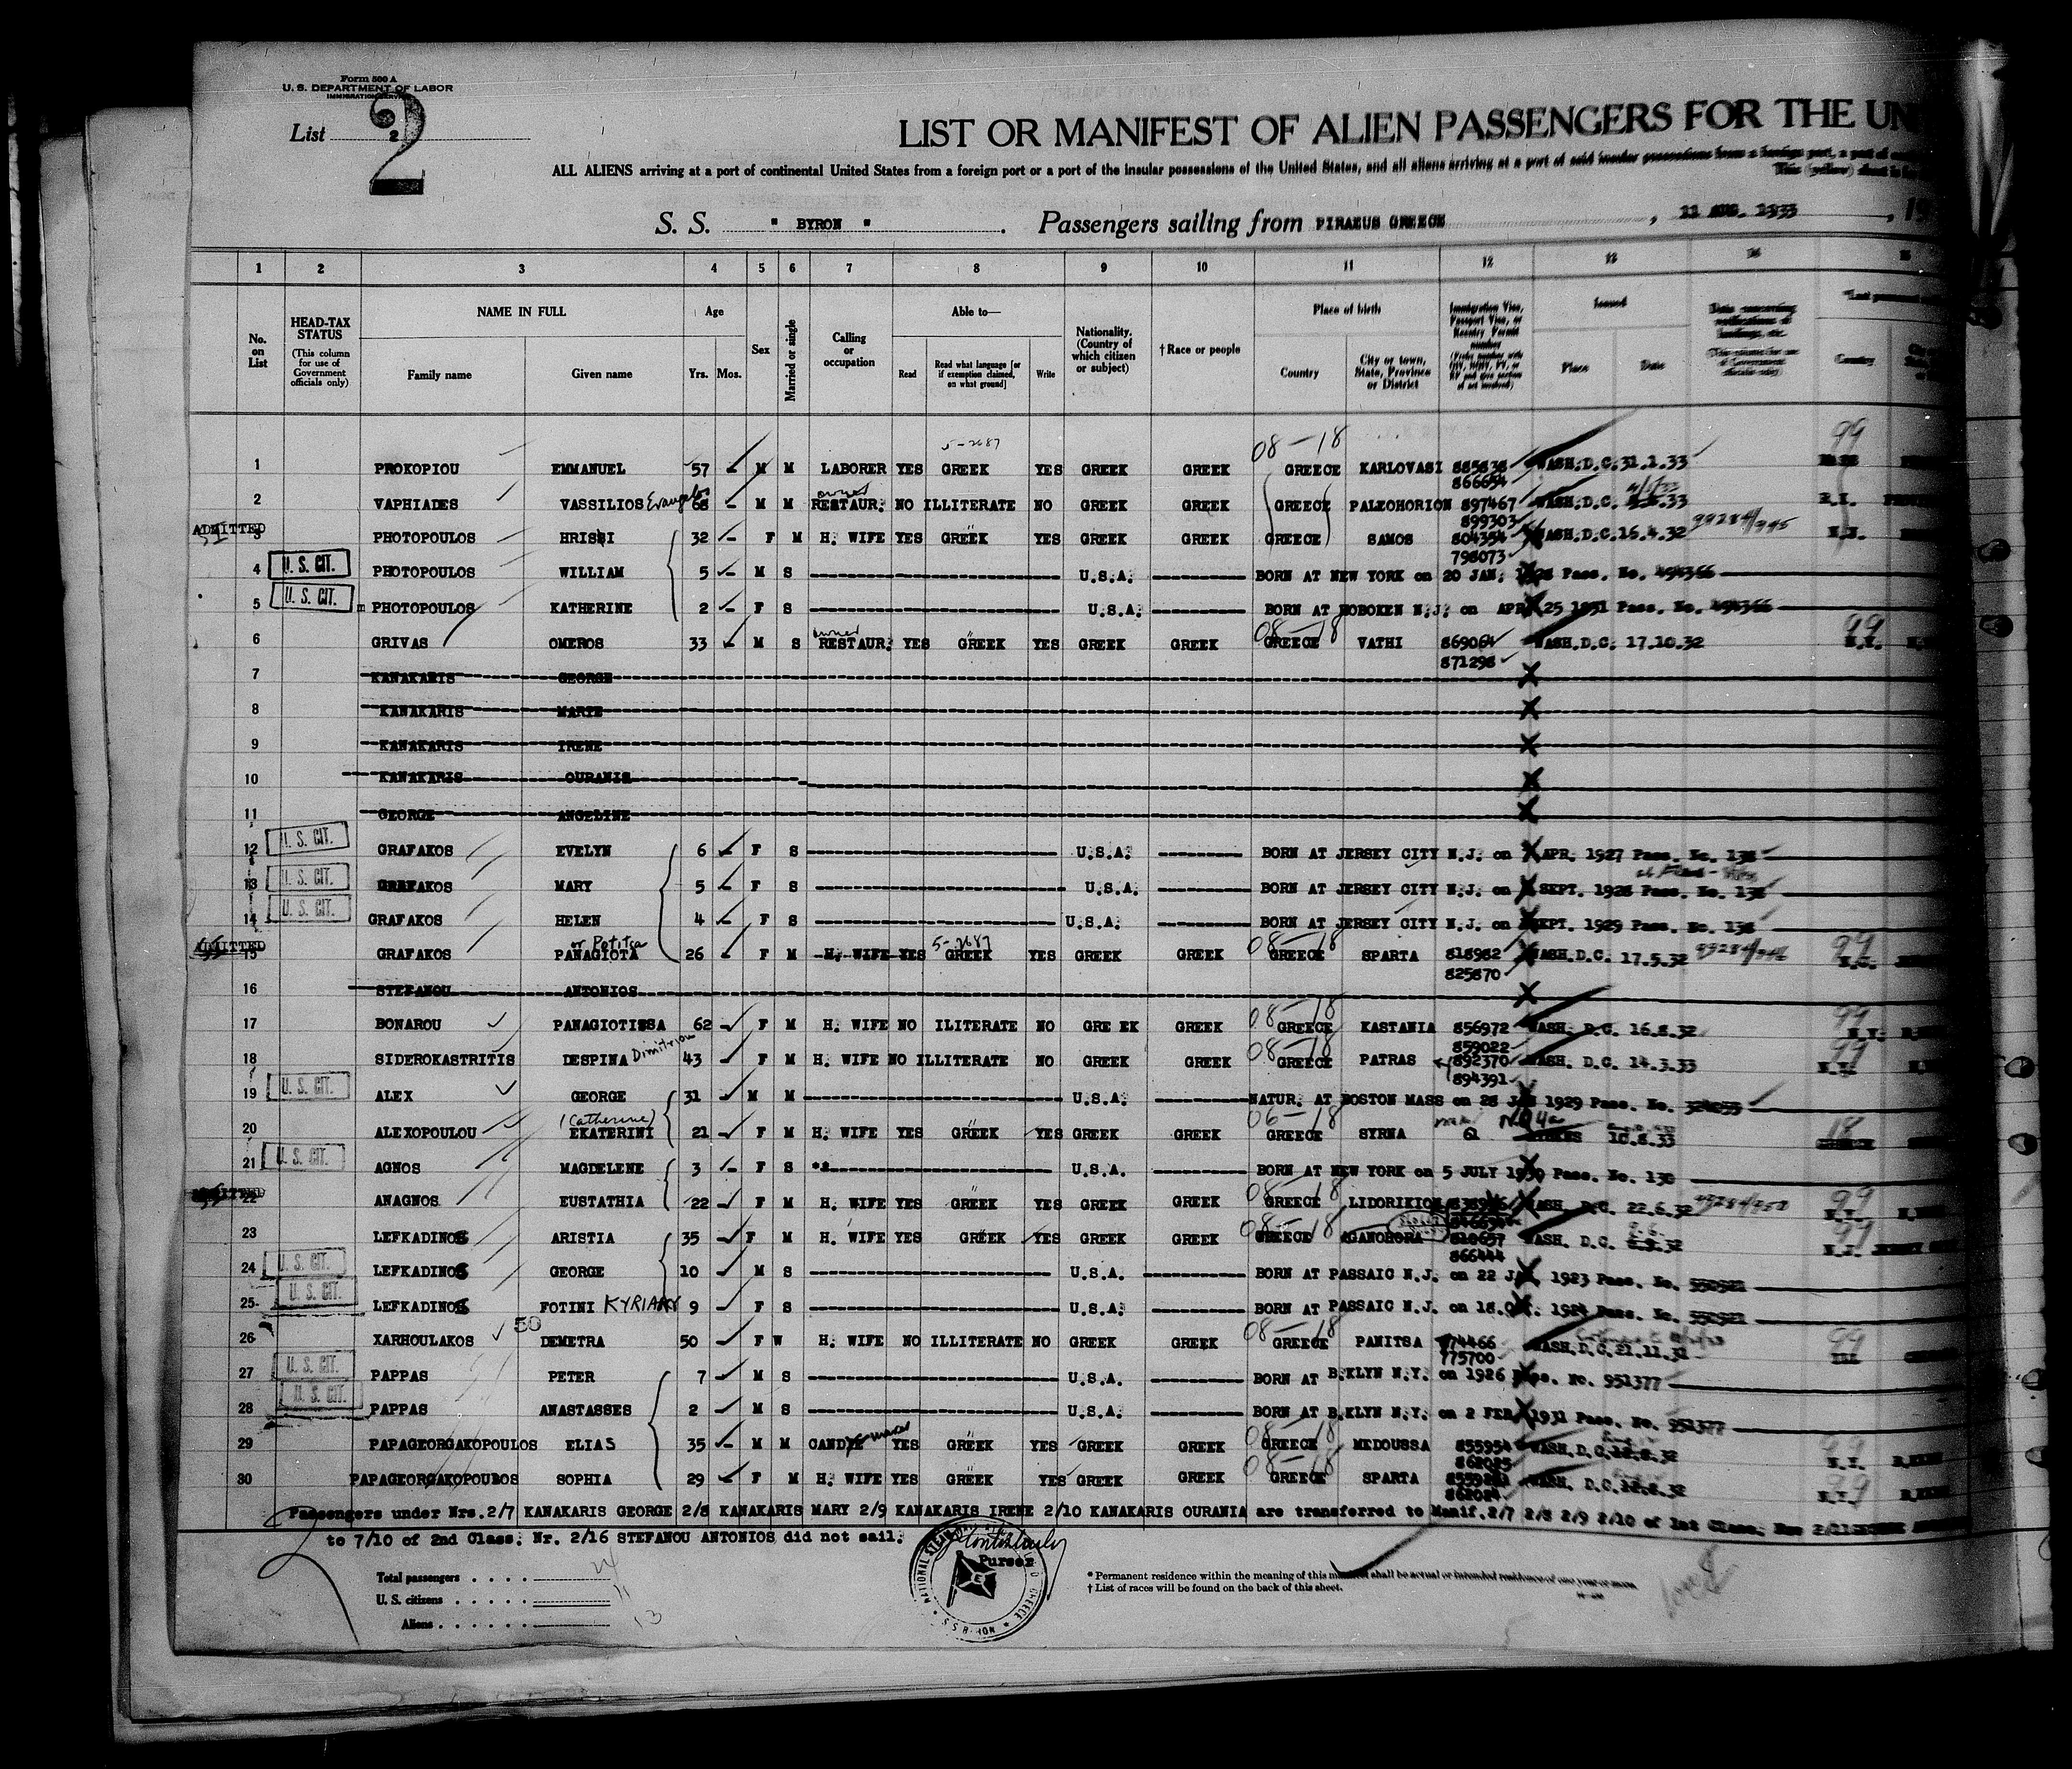 Form 500 A
U. S. DEPARTMENT OF LABOR
IMMIGRATION SERVICE
List 2
2
LIST OR MANIFEST OF ALIEN PASSENGERS FOR THE UN
ALL ALIENS arriving at a port of continental United States from a foreign port or a port of the insular possessions of the United States, and all aliens arriving at a port of said insular possessions from a foreign port, a port of
This (yellow) sheet is
S. S. " BYRON " . Passengers sailing from PIRAEUS GREECE , 11 AUG. 1933 , 19
1 2 3 4 5 6 7 8 9 10 11 12 13 14 15
No. on List
HEAD-TAX STATUS (This column for use of Government officials only)
NAME IN FULL
Family name Given name
Age
Yrs. Mos.
Sex
Married or single
Calling or occupation
Able to—
Read Read what language [or if exemption claimed, on what ground] Write
Nationality. (Country of which citizen or subject)
† Race or people
Place of birth
Country City or town, State, Province or District
Immigration Visa, Passport Visa, or Reentry Permit number
Issued
Place Date
Country
5-2687 08-18 99
1 PROKOPIOU EMMANUEL 57 M M LABORER YES GREEK YES GREEK GREEK GREECE KARLOVASI 885838 WASH.D.C.31.1.33
866654
2 VAPHIADES VASSILIOS 68 M M RESTAUR. owner NO ILLITERATE NO GREEK GREEK GREECE PALEOHORION 897467 WASH.D.C. .33 R.I.
899303
ADMITTED
3 PHOTOPOULOS HRISSI 32 F M H. WIFE YES GREEK YES GREEK GREEK GREECE SAMOS 804354 WASH.D.C.15.4.32 N.J.
798073
4 U. S. CIT. PHOTOPOULOS WILLIAM 5 M S U.S.A. BORN AT NEW YORK on 20 JAN. Pass. No.
5 U. S. CIT. PHOTOPOULOS KATHERINE 2 F S U.S.A. BORN AT HOBOKEN N.J. on APR 25 1931 Pass. No.
6 GRIVAS OMEROS 33 M S RESTAUR. owner YES GREEK YES GREEK GREEK 08-18 GREECE VATHI 869064 WASH.D.C. 17.10.32 99 N.Y.
871298
7 KANAKARIS GEORGE
8 KANAKARIS MARIE
9 KANAKARIS IRENE
10 KANAKARIS OURANIA
11 GEORGE ANGELINE
12 U. S. CIT. GRAFAKOS EVELYN 6 F S U.S.A. BORN AT JERSEY CITY N.J. on APR. 1927 Pass. No. 138
13 U. S. CIT. GRAFAKOS MARY 5 F S U.S.A. BORN AT JERSEY CITY N.J. on SEPT. 1928 Pass. No. 138
14 U. S. CIT. GRAFAKOS HELEN 4 F S U.S.A. BORN AT JERSEY CITY N.J. on SEPT. 1929 Pass. No. 138
ADMITTED or Potitsa 5-2687
15 GRAFAKOS PANAGIOTA 26 F M H. WIFE YES GREEK YES GREEK GREEK 08-18 GREECE SPARTA 818982 WASH.D.C. 17.5.32 99
825870
16 STEFANOU ANTONIOS
17 BONAROU PANAGIOTISSA 62 F M H. WIFE NO ILITERATE NO GRE EK GREEK 08-18 GREECE KASTANIA 856972 WASH. D.C. 16.8.32 99 N.Y.
859022
18 SIDEROKASTRITIS DESPINA Dimitriou 43 F M H. WIFE NO ILLITERATE NO GREEK GREEK 08-18 GREECE PATRAS 892370 WASH. D.C. 14.3.33 99
894391
19 U. S. CIT. ALEX GEORGE 31 M M U.S.A. NATUR. AT BOSTON MASS on 28 JAN 1929 Pass. No.
(Catherine)
20 ALEXOPOULOU EKATERINI 21 F M H. WIFE YES GREEK YES GREEK GREEK 06-18 GREECE SYRNA 10.8.33 18
21 U. S. CIT. AGNOS MAGDELENE 3 F S U.S.A. BORN AT NEW YORK on 5 JULY 1930 Pass. No. 130
22 ANAGNOS EUSTATHIA 22 F M H. WIFE YES GREEK YES GREEK GREEK 08-18 GREECE LIDORIKION WASH. D.C. 22.6.32 99
23 LEFKADINOS ARISTIA 35 F M H. WIFE YES GREEK YES GREEK GREEK 08-18 GREECE AGANOHORA WASH. D.C. 99 N.J.
866444
24 U. S. CIT. LEFKADINOS GEORGE 10 M S U.S.A. BORN AT PASSAIC N.J. on 22 JAN. 1923 Pass. No.
25 U. S. CIT. LEFKADINOS FOTINI KYRIAKY 9 F S U.S.A. BORN AT PASSAIC N.J. on 18.OCT. 1924 Pass. No.
50
26 XARHOULAKOS DEMETRA 50 F W H. WIFE NO ILLITERATE NO GREEK GREEK 08-18 GREECE PANITSA 774466 WASH.D.C.21.11.31 99
775700
27 U. S. CIT. PAPPAS PETER 7 M S U.S.A. BORN AT B.KLYN N.Y. on 1926 Pass. No. 951377
28 U. S. CIT. PAPPAS ANASTASSES 2 M S U.S.A. BORN AT B.KLYN N.Y. on 2 FEB. 1931 Pass. No. 951377
29 PAPAGEORGAKOPOULOS ELIAS 35 M M CANDY maker YES GREEK YES GREEK GREEK 08-18 GREECE MEDOUSSA 855954 WASH.D.C. 32 99
862025
30 PAPAGEORGAKOPOULOS SOPHIA 29 F M H. WIFE YES GREEK YES GREEK GREEK 08-18 GREECE SPARTA WASH. D.C. 32 99
862024
Passengers under Nrs.2/7 KANAKARIS GEORGE 2/8 KANAKARIS MARY 2/9 KANAKARIS IRENE 2/10 KANAKARIS OURANIA are transferred to Manif.2/7 2/8 2/9 2/10 of 1st Class.
to 7/10 of 2nd Class. Nr. 2/16 STEFANOU ANTONIOS did not sail.
Purser
Total passengers . . . . 24
U. S. citizens . . . . . 11
Aliens . . . . . . 13
* Permanent residence within the meaning of this manifest shall be actual or intended residence of one year or more.
† List of races will be found on the back of this sheet.